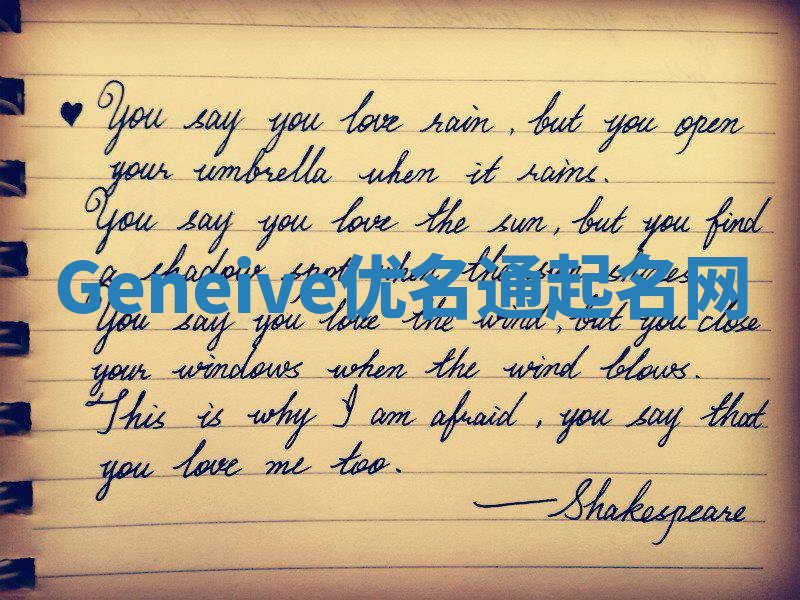 ♥ You say you love rain, but you open
your umbrella when it rains.
You say you love the sun, but you find
a shadow spot when the sun shines.
Geneive优名通起名网
You say you love the wind, but you close
your windows when the wind blows.
This is why I am afraid, you say that
you love me too.
—Shakespeare